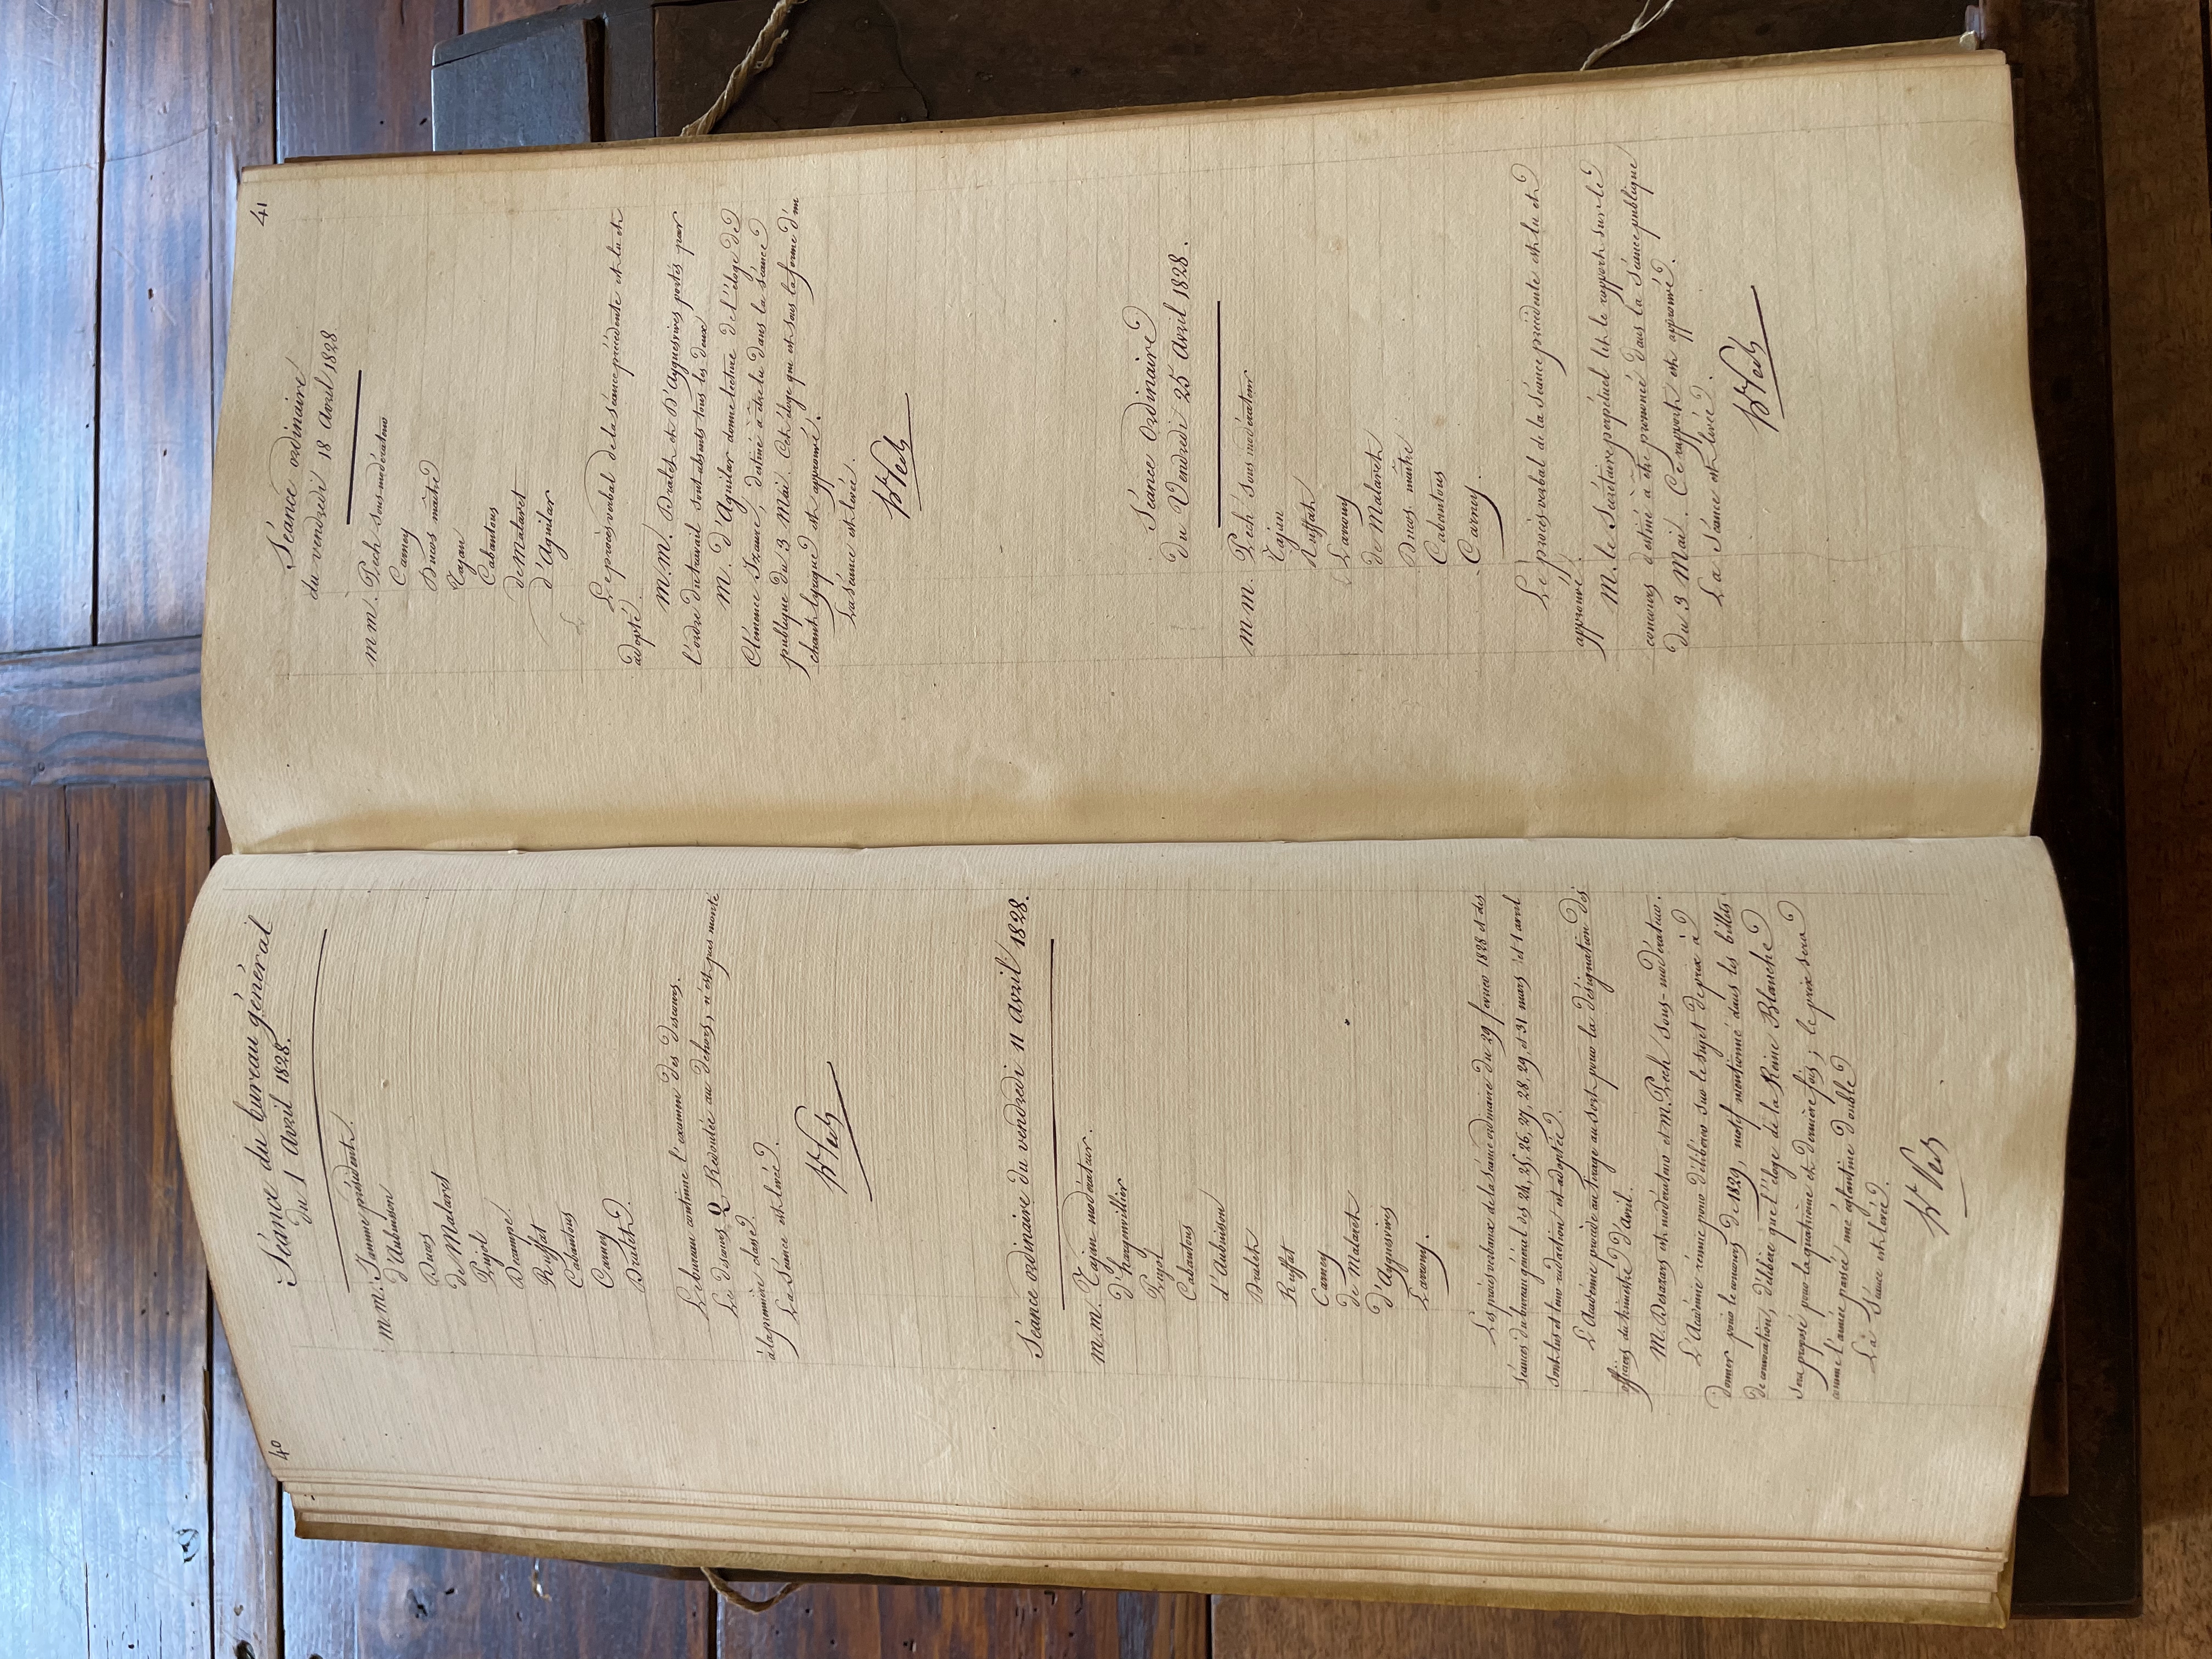 40
Séance du bureau général
du 1 Avril 1828.
m.m. Jamme président.
d'Aubuisson
Ducos
de Malaret
Pujol
Decampe
Ruffat
Cabantous
Carney
Dralet
Le bureau continue l'examen des discours.
Le discours Q Redoutée au dehors, n'est pas monté
à la première classe.
La Séance est levée.
Séance ordinaire du vendredi 11 avril 1828.
m.m. Tajan modérateur.
d'hargenvillier
Pujol
Cabantous
d'Aubuisson
Dralet
Ruffat
Carney
de Malaret
d'Ayguesvives
Larrouy.
Les procès verbaux de la séance ordinaire du 29 fevrier 1828 et des
séances du bureau général des 24, 25, 26, 27, 28, 29, et 31 mars et 1 avril
sont lus et leur rédaction est adoptée.
L'Académie procède au tirage au sort pour la désignation des
officiers du trimestre d'avril.
M. Desazars est modérateur et M. Pech sous-modérateur.
L'Académie réunie pour délibérer sur le sujet de prix à
donner pour le concours de 1829, motif mentionné dans les billets
de convocation, délibère que l'éloge de la Reine Blanche
sera proposé pour la quatrième et dernière fois; le prix sera
comme l'année passée une églantine double
La Séance est levée.
hte Pech
41
Séance ordinaire
du vendredi 18 Avril 1828
m m. Pech sous modérateur
Carney
Ducos maître
Tajan
Cabantous
de Malaret
d'Aguilar
Le procès verbal de la séance précédente est lu et
adopté.
M.M. Dralet et D'Ayguesvives portés par
l'ordre du travail sont absents tous les deux
M. d'Aguilar donne lecture de l'éloge de
Clémence Isaure, destiné à être lu dans la séance
publique du 3 Mai. Cet éloge qui est sous la forme d'un
chant lyrique est approuvé.
La Séance est levée.
Séance Ordinaire
Du Vendredi 25 Avril 1828.
m m. Pech sous modérateur
Tajan
Ruffat
Larrouy
de Malaret
Ducos maître
Cabantous
Carney.
Le procès verbal de la séance précédente est lu et
approuvé.
M. le Secrétaire perpétuel lit le rapport sur le
concours destiné à être prononcé dans la Séance publique
du 3 Mai. Ce rapport est approuvé.
La Séance est levée.